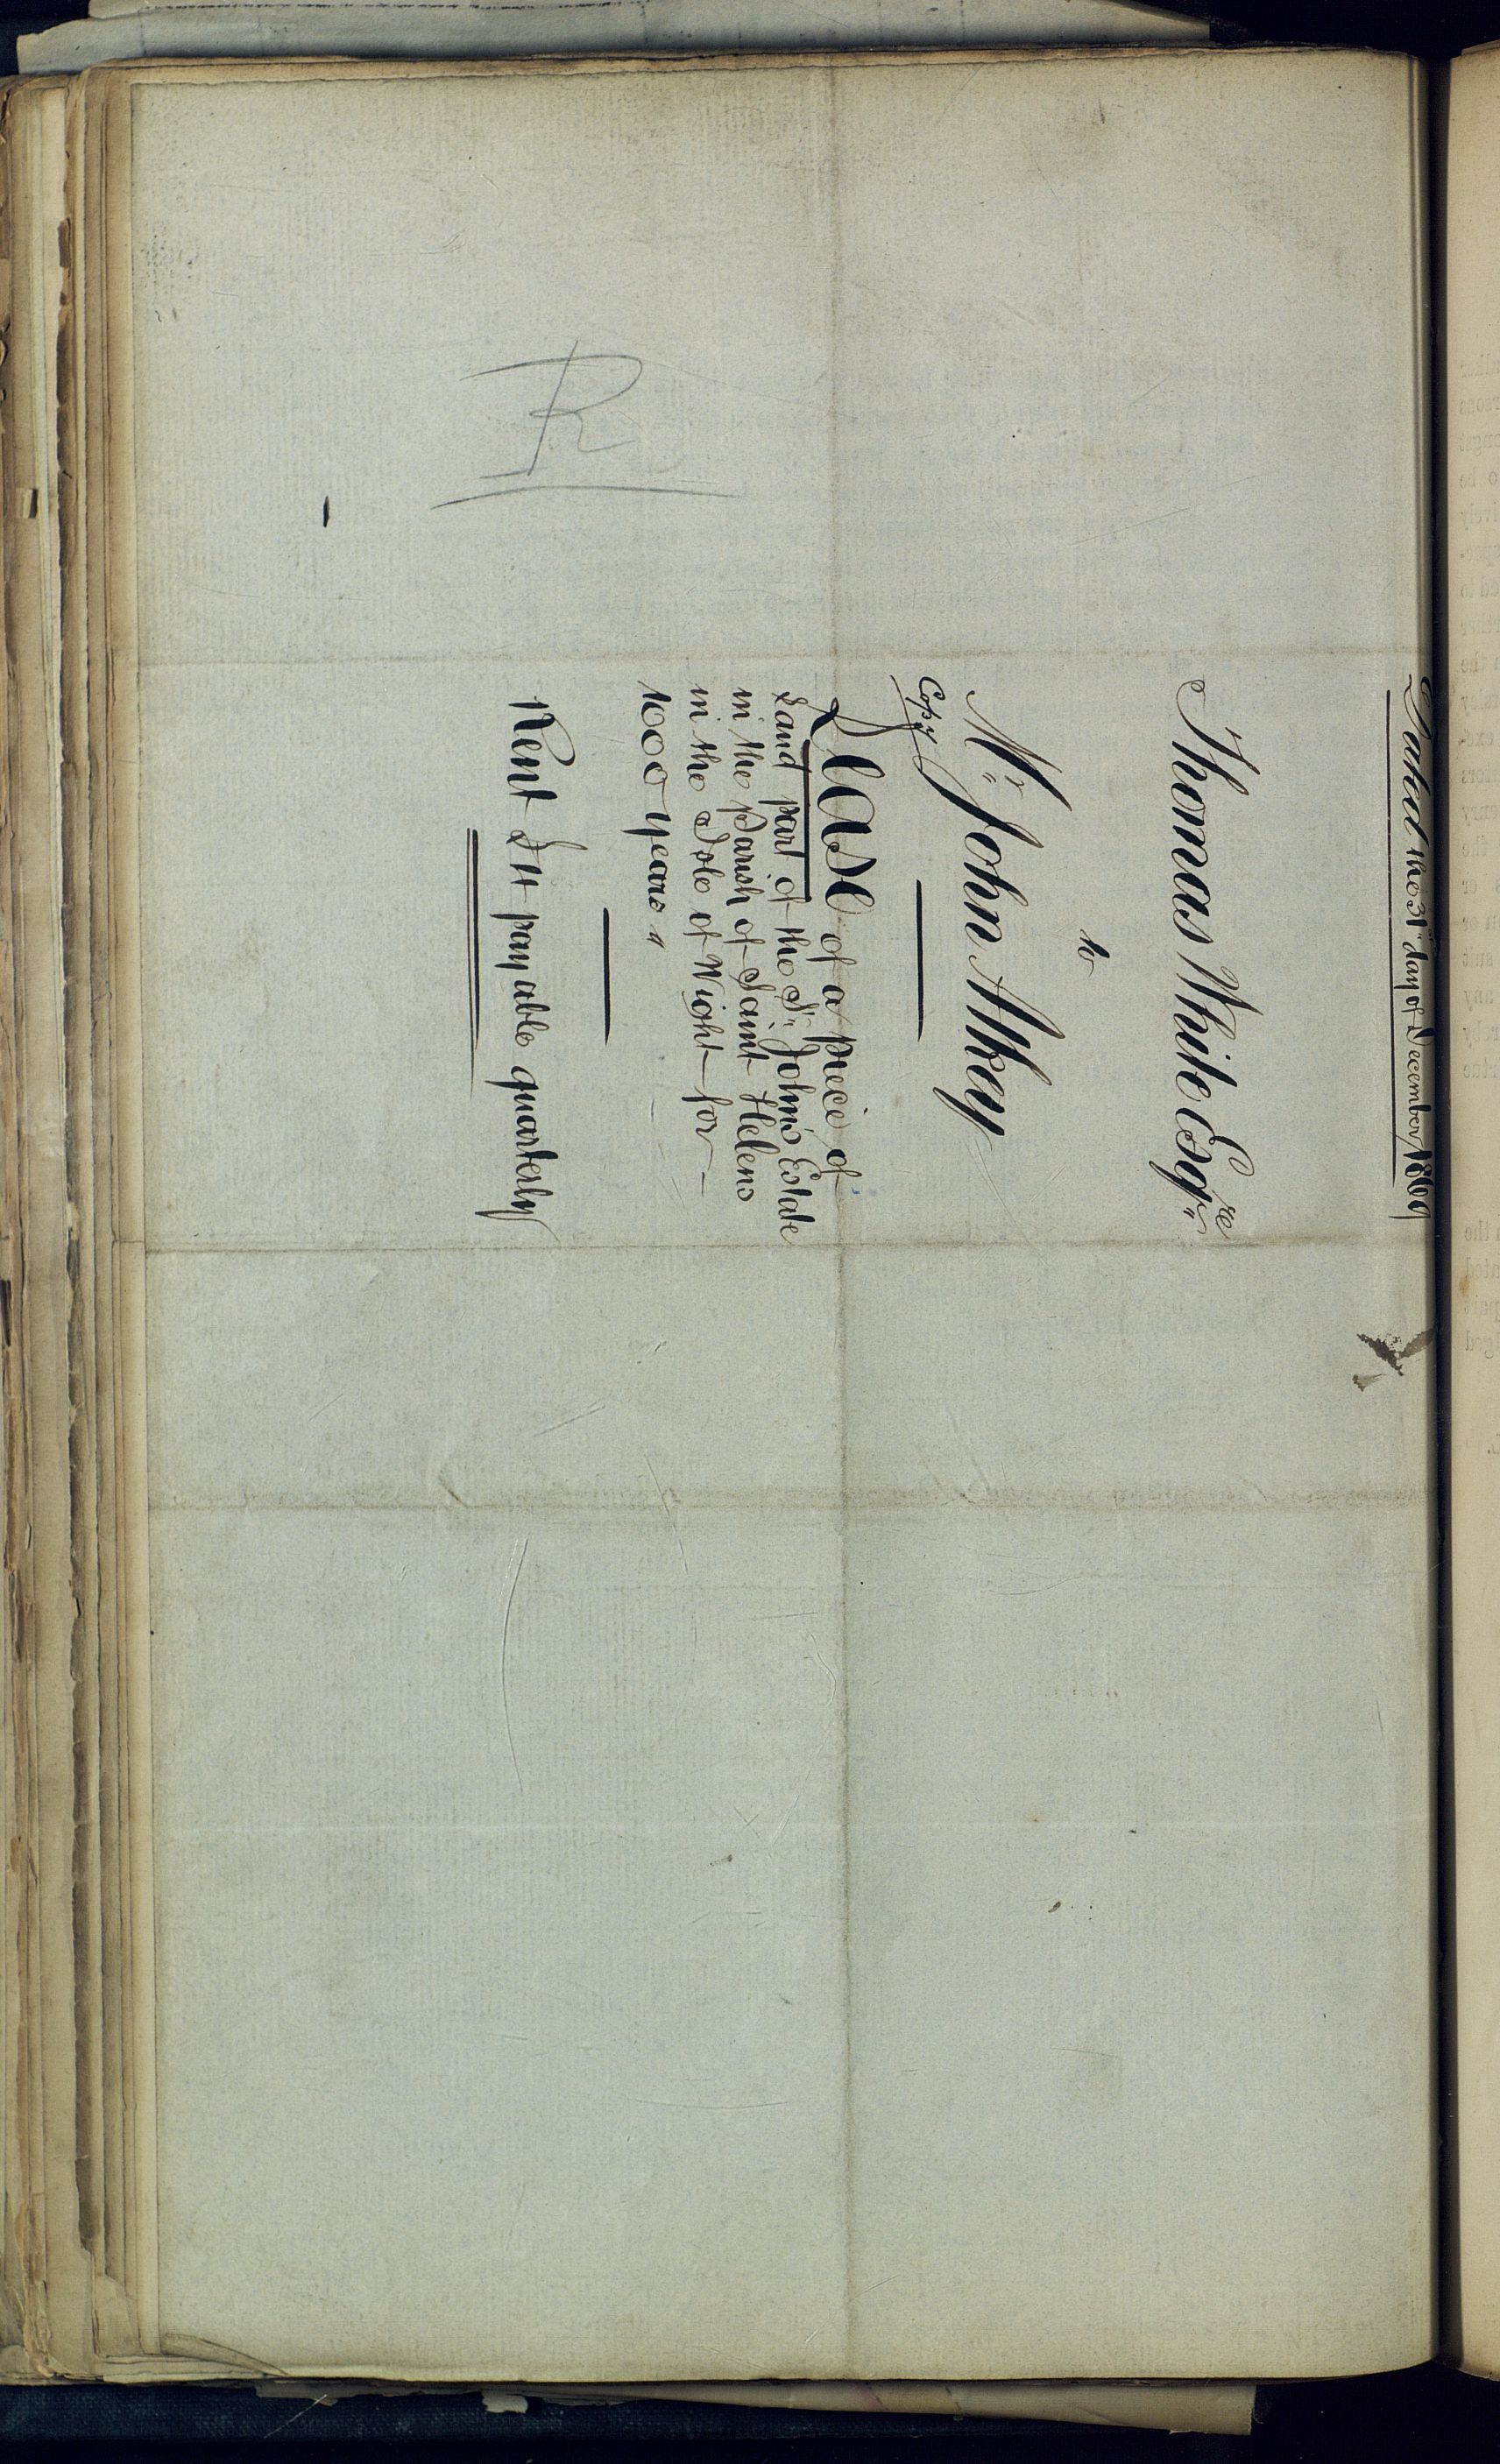 Dated the 31st day of December 1869
Thomas White Esqre
to
Mr John Alkey
Copy
Lease of a piece of
Land part of the St John's Estate
in the Parish of Saint Helens
in the Isle of Wight for
1000 years
Rent £4 payable quarterly
R